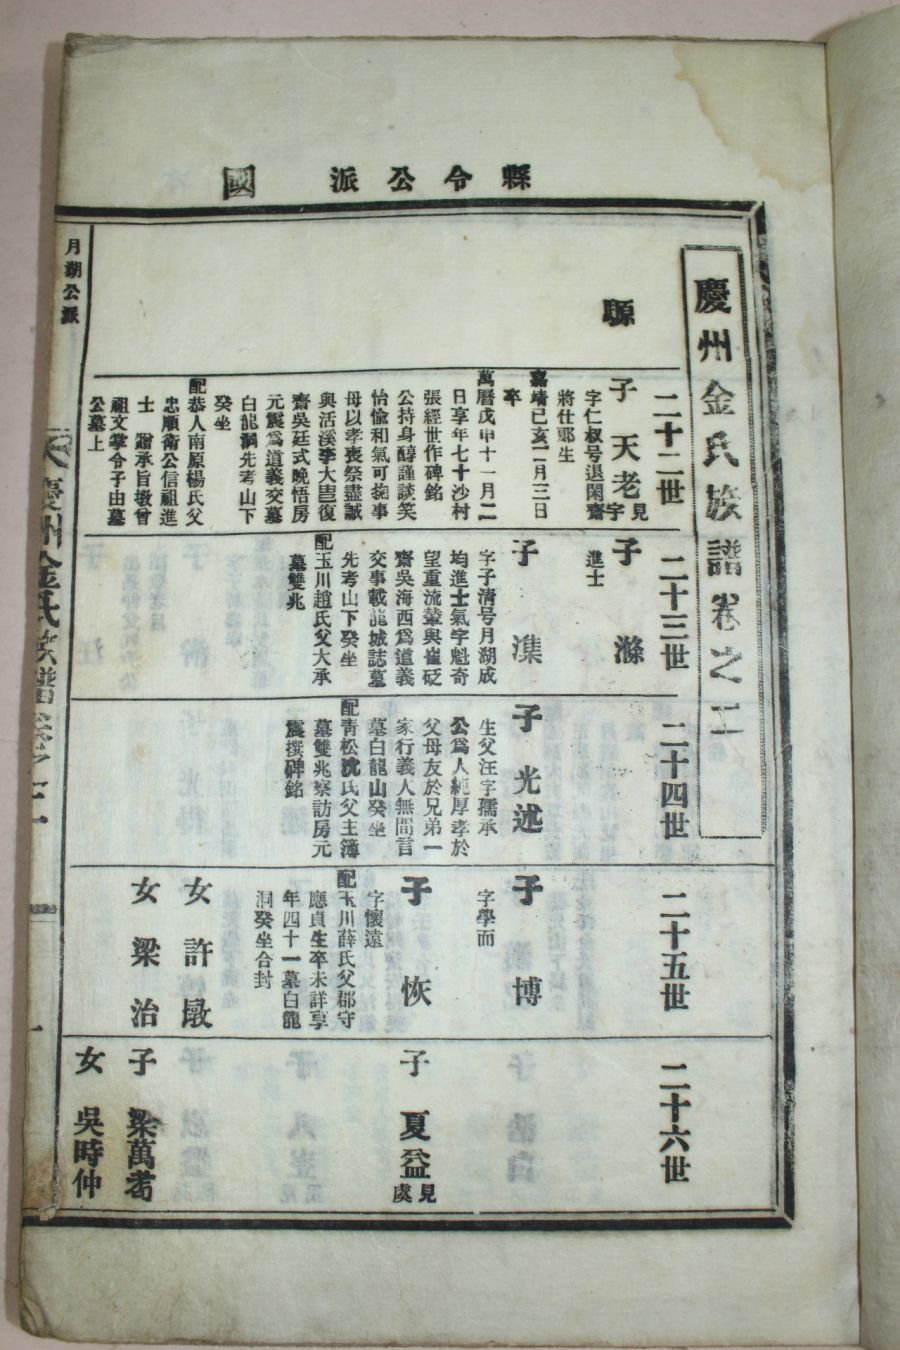 縣令公派 國
慶州金氏族譜卷之二
騵
二十二世
子 天老 見宇
字仁叔号退閑齋
將仕郞生
嘉靖已亥二月三日
卒
萬曆戊申十一月二
日享年七十沙村
張經世作碑銘
公持身醇謹談笑
怡愉和氣可掬事
母以孝喪祭盡誠
與活溪李大㽕復
齋吳廷式晚悟房
元震爲道義交墓
白龍洞先考山下
癸坐
配恭人南原楊氏父
忠順衛公信祖進
士 贈承旨墩曾
祖文掌令子由墓
公墓上
二十三世
子 滌
進士
子 潗
字子淸号月湖成
均進士氣宇魁奇
望重流輩與崔砭
齋吳海西爲道義
交事載龍城誌墓
先考山下癸坐
配玉川趙氏父大承
墓雙兆
二十四世
子 光述
生父汪字孺承
公爲人純厚孝於
父母友於兄弟一
家行義人無間言
墓白龍山癸坐
配靑松沈氏父主簿
墓雙兆察訪房元
震撰碑銘
二十五世
子 博
字學而
子 恢
字懷遠
配玉川薛氏父郡守
應貞生卒未詳享
年四十一墓白龍
洞癸坐合封
女 許墩
女 梁治
二十六世
子 夏益 見虞
子 梁萬耈
女 吳時仲
月湖公派
慶州金氏族譜卷之二
一